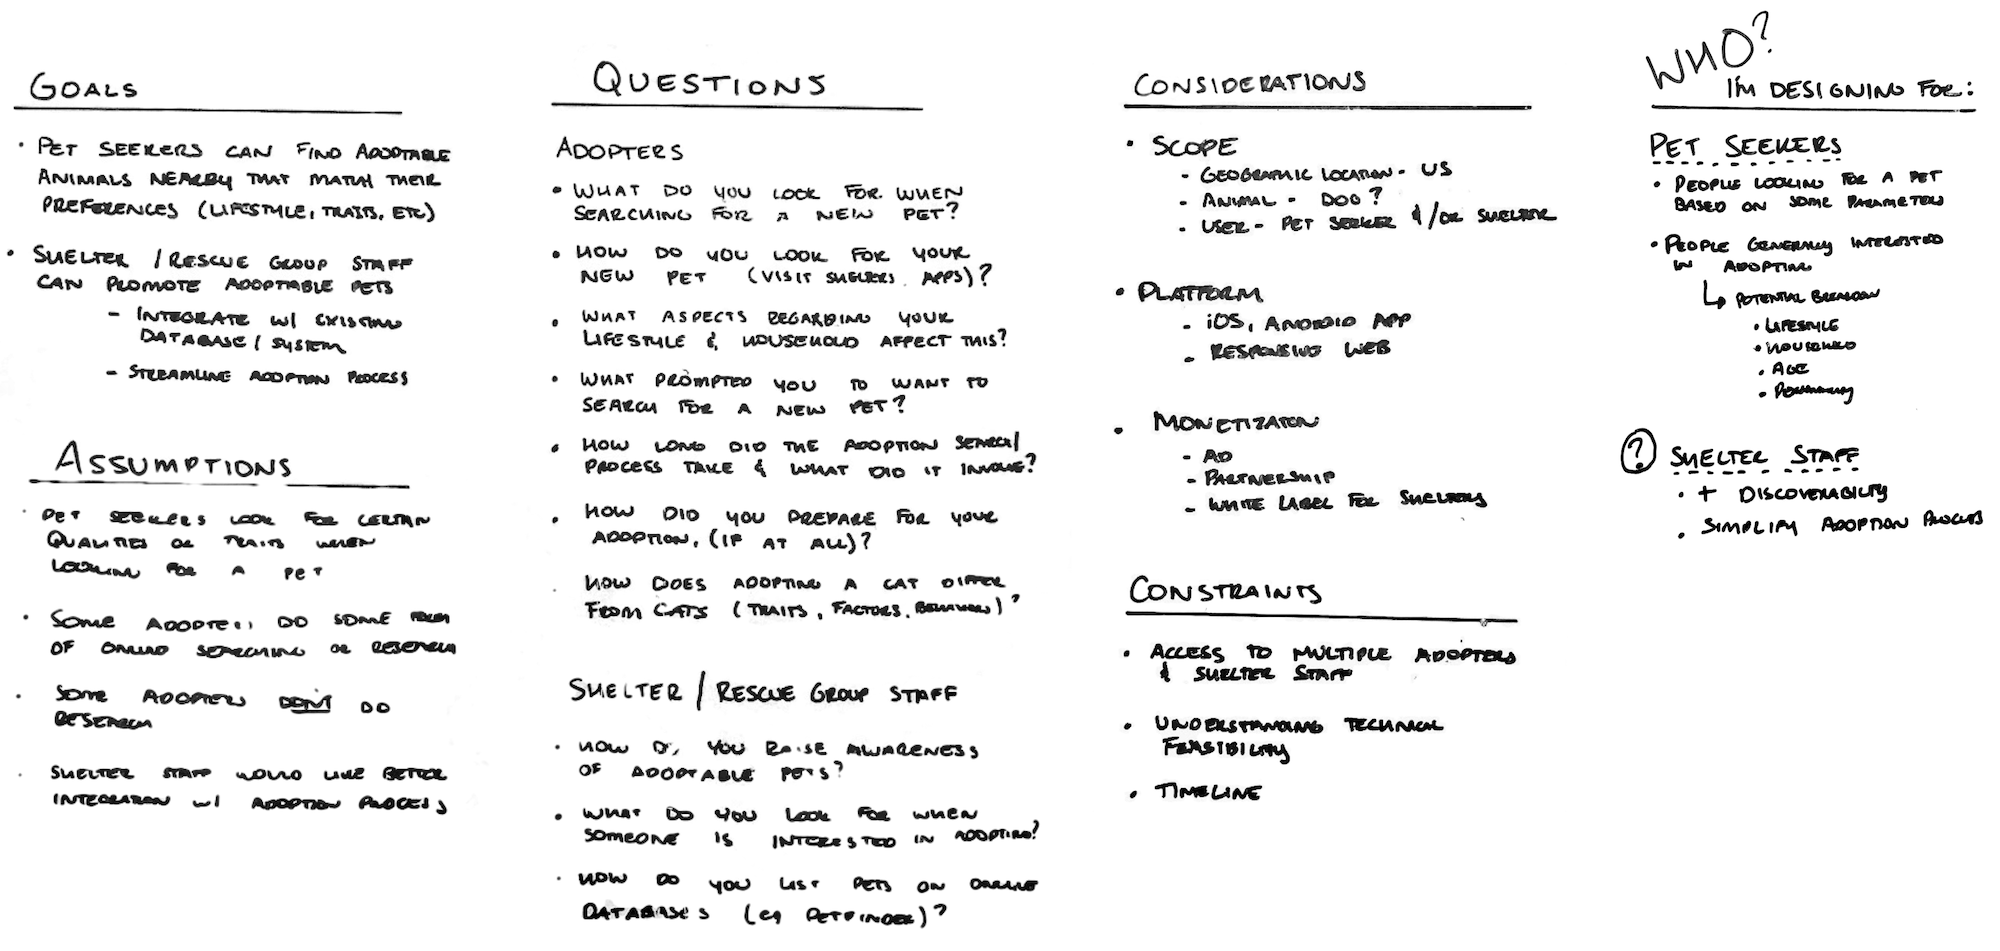 GOALS
• PET SEEKERS CAN FIND ADOPTABLE
ANIMALS NEARBY THAT MATCH THEIR
PREFERENCES (LIFESTYLE, TRAITS, ETC)
• SHELTER / RESCUE GROUP STAFF
CAN PROMOTE ADOPTABLE PETS
- INTEGRATE W/ EXISTING
DATABASE / SYSTEM
- STREAMLINE ADOPTION PROCESS
ASSUMPTIONS
• PET SEEKERS LOOK FOR CERTAIN
QUALITIES OR TRAITS WHEN
LOOKING FOR A PET
• SOME ADOPTERS DO SOME FORM
OF ONLINE SEARCHING OR RESEARCH
• SOME ADOPTERS DON'T DO
RESEARCH
• SHELTER STAFF WOULD LIKE BETTER
INTEGRATION W/ ADOPTION PROCESS
QUESTIONS
ADOPTERS
• WHAT DO YOU LOOK FOR WHEN
SEARCHING FOR A NEW PET?
• HOW DO YOU LOOK FOR YOUR
NEW PET (VISIT SHELTERS, APPS)?
• WHAT ASPECTS REGARDING YOUR
LIFESTYLE & HOUSEHOLD AFFECT THIS?
• WHAT PROMPTED YOU TO WANT TO
SEARCH FOR A NEW PET?
• HOW LONG DID THE ADOPTION SEARCH/
PROCESS TAKE & WHAT DID IT INVOLVE?
• HOW DID YOU PREPARE FOR YOUR
ADOPTION, (IF AT ALL)?
• HOW DOES ADOPTING A CAT DIFFER
FROM CATS (TRAITS, FACTORS, BEHAVIORS)?
SHELTER / RESCUE GROUP STAFF
• HOW DO YOU RAISE AWARENESS
OF ADOPTABLE PETS?
• WHAT DO YOU LOOK FOR WHEN
SOMEONE IS INTERESTED IN ADOPTING?
• HOW DO YOU LIST PETS ON ONLINE
DATABASES (eg PETFINDER)?
CONSIDERATIONS
• SCOPE
- GEOGRAPHIC LOCATION - US
- ANIMAL - DOG?
- USER - PET SEEKER &/OR SHELTER
• PLATFORM
- iOS, ANDROID APP
- RESPONSIVE WEB
• MONETIZATON
- AD
- PARTNERSHIP
- WHITE LABEL FOR SHELTERS
CONSTRAINTS
• ACCESS TO MULTIPLE ADOPTERS
& SHELTER STAFF
• UNDERSTANDING TECHNICAL
FEASIBILITY
• TIMELINE
WHO?
I'M DESIGNING FOR:
PET SEEKERS
• PEOPLE LOOKING FOR A PET
BASED ON SOME PARAMETERS
• PEOPLE GENERALLY INTERESTED
IN ADOPTING
↳ POTENTIAL BREAKDOWN
• LIFESTYLE
• HOUSEHOLD
• AGE
• PERSONALITY
? SHELTER STAFF
• + DISCOVERABILITY
• SIMPLIFY ADOPTION PROCESS